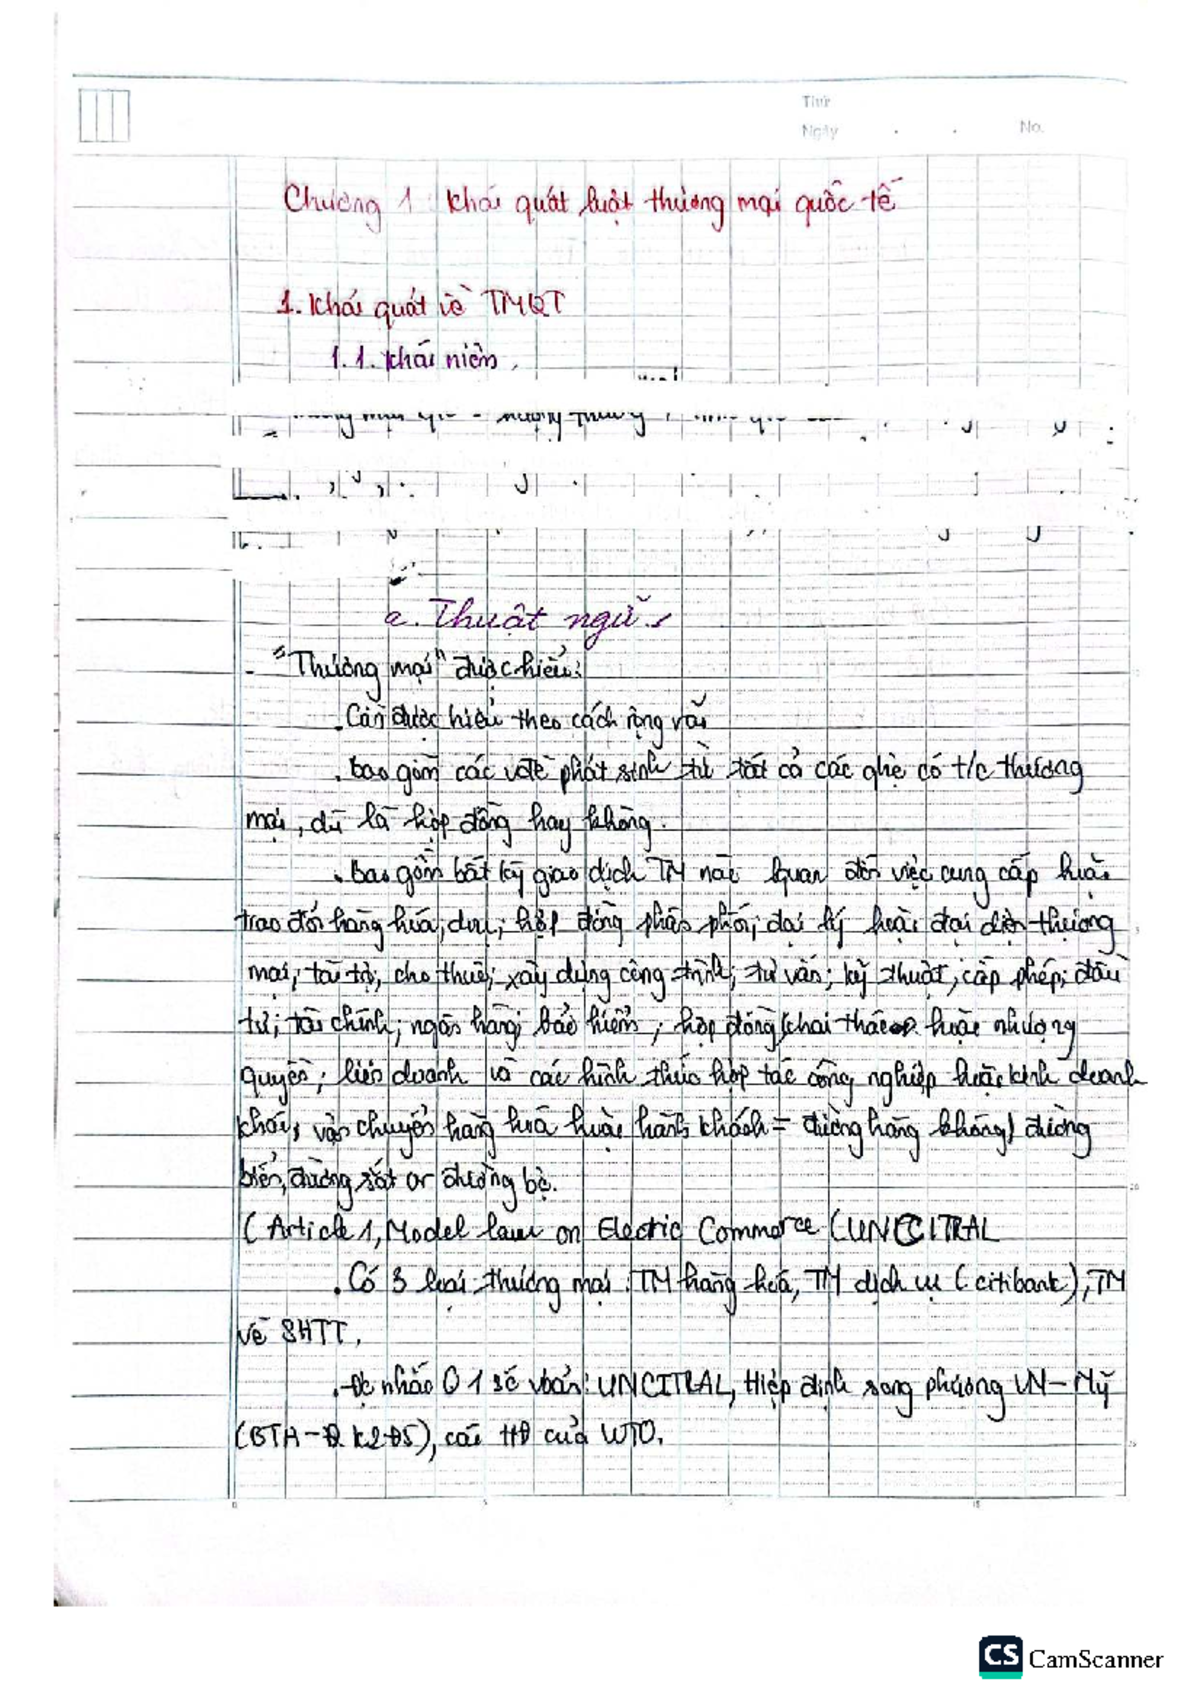 Thứ
Ngày . . No.
Chương 1 : Khái quát luật thương mại quốc tế
1. Khái quát về TMQT
1.1. Khái niệm.
a. Thuật ngữ.
- "Thương mại" được hiểu:
. Cần được hiểu theo cách rộng rãi
. bao gồm các vđề phát sinh từ tất cả các qhệ có t/c thương
mại, dù là hợp đồng hay không.
. bao gồm bất kỳ giao dịch TM nào lquan đến việc cung cấp hoặc
trao đổi hàng hóa, dvụ; hợp đồng phân phối; đại lý hoặc đại diện thương
mại; tài trợ, cho thuê; xây dựng công trình; tư vấn; kỹ thuật; cấp phép; đầu
tư; tài chính; ngân hàng; bảo hiểm; hợp đồng khai thác hoặc nhượng
quyền; liên doanh và các hình thức hợp tác công nghiệp hoặc kinh doanh
khác; vận chuyển hàng hoá hoặc hành khách = đường hàng không, đường
biển, đường sắt or đường bộ.
(Article 1, Model law on Electric Commerce (UNCITRAL
. Có 3 loại thương mại: TM hàng hoá, TM dịch vụ (citibank), TM
về SHTT.
. Đc nhắc ở 1 số vbản: UNCITRAL, Hiệp định song phương VN - Mỹ
(BTA - Đ. K2 Đ5), các HĐ của WTO.
CS CamScanner